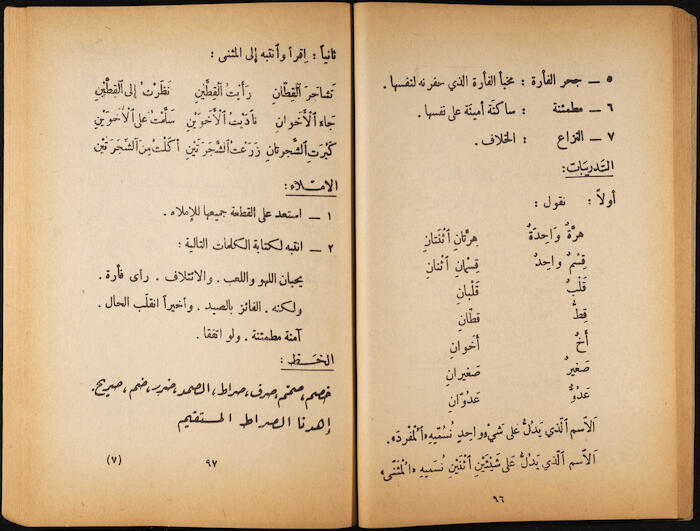 ٥ ــ جحر الفأرة : مخبأ الفأرة الذي حفرته لنفسها .
٦ ــ مطمئنة : ساكنة أمينة على نفسها .
٧ ــ النزاع : الخلاف .
التدريبات :
أولاً : نقول :
هرةٌ وَاحِدَةٌ هِرتانِ اثْنَتانِ
قِسْمٌ وَاحِدٌ قِسْمانِ اثْنانِ
قَلْبٌ قَلْبانِ
قِطٌّ قِطّانِ
أخٌ أخَوانِ
صَغيرٌ صَغيرانِ
عَدُوٌّ عَدُوّانِ
الاسم الّذي يَدُلُّ على شَيْءٍ واحِدٍ نُسَميهِ « المُفْرد » .
الاسم الّذي يَدُلُّ على شَيْئَيْنِ اثْنَيْنِ نُسَميهِ « المُثَنّى »
٩٦
ثانياً : إقرأ وأنتبه إلى المثنى :
تشاجَرَ القِطّانِ رَأَيْتُ القِطَّيْنِ نَظَرْتُ إلى القِطَّيْنِ
جاءَ الأَخَوانِ نادَيْتُ الأَخَوَيْنِ سَلَّمْتُ على الأَخَوَيْنِ
كَبُرَتِ الشَّجَرَتانِ زَرَعْتُ الشَّجَرَتَيْنِ أكَلْتُ مِنَ الشَّجَرَتَيْنِ
الإملاء :
١ ــ استعد على القطعة جميعها للإملاء .
٢ ــ انتبه لكتابة الكلمات التالية :
يحبان اللهو واللعب . والائتلاف . رأى فأرة .
ولكنه . الفائز بالصيد . وأخيراً انقلَب الحال .
آمنة مطمئنة . ولو اتفقا .
الخط :
خصم، صمّم، صرف، صراط، الصمد، ضرر، ضم، صريح.
إهدنا الصراط المستقيم
٩٧
(٧)